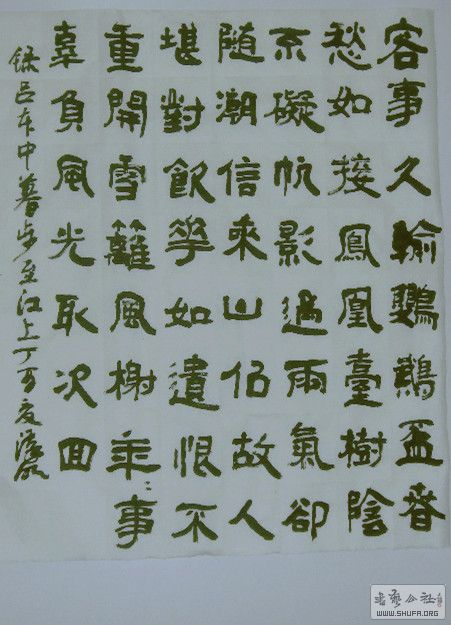 客事久輸鸚鵡盃春
愁如接鳳凰臺樹陰
不礙帆影過雨氣卻
隨潮信來山佀故人
堪對飲華如遺恨不
重開雪籬風榭年〻事
辜負風光取次回
錄呂本中暮步至江上丁酉夏
书艺公社
WWW.SHUFA.ORG